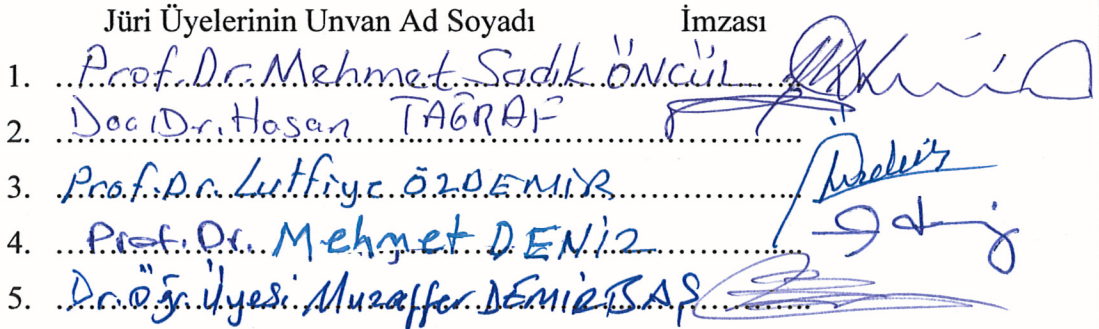 Jüri Üyelerinin Unvan Ad Soyadı İmzası
1. Prof. Dr. Mehmet Sadık ÖNCÜL
2. Doç. Dr. Hasan TAĞRAF
3. Prof. Dr. Lutfiye ÖZDEMİR
4. Prof. Dr. Mehmet DENİZ
5. Dr. Öğr. Üyesi Muzaffer DEMİRBAŞ